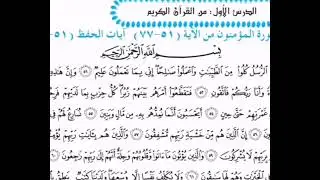 الدرس الأول: من القرآن الكريم
ورة المؤمنون من الآية (٥١-٧٧) آيات الحفظ (٥١-
بِسْمِ اللَّهِ الرَّحْمَٰنِ الرَّحِيمِ
الرُّسُلُ كُلُوا مِنَ الطَّيِّبَاتِ وَاعْمَلُوا صَالِحًا إِنِّي بِمَا تَعْمَلُونَ عَلِيمٌ ٥١ وَإِنَّ هَٰذِهِ
وَأَنَا رَبُّكُمْ فَاتَّقُونِ ٥٢ فَتَقَطَّعُوا أَمْرَهُم بَيْنَهُمْ زُبُرًا كُلُّ حِزْبٍ
غَمْرَتِهِمْ حَتَّىٰ حِينٍ ٥٤ أَيَحْسَبُونَ أَنَّمَا نُمِدُّهُم بِهِ مِن مَّالٍ وَبَنِينَ ٥٥
إِنَّ الَّذِينَ هُم مِّنْ خَشْيَةِ رَبِّهِم مُّشْفِقُونَ ٥٧ وَالَّذِينَ هُم بِآيَاتِ رَبِّهِمْ
بِرَبِّهِمْ لَا يُشْرِكُونَ ٥٩ وَالَّذِينَ يُؤْتُونَ مَا آتَوا وَّقُلُوبُهُمْ وَجِلَةٌ أَنَّهُمْ إِلَىٰ رَبِّهِمْ رَاجِعُونَ ٦٠